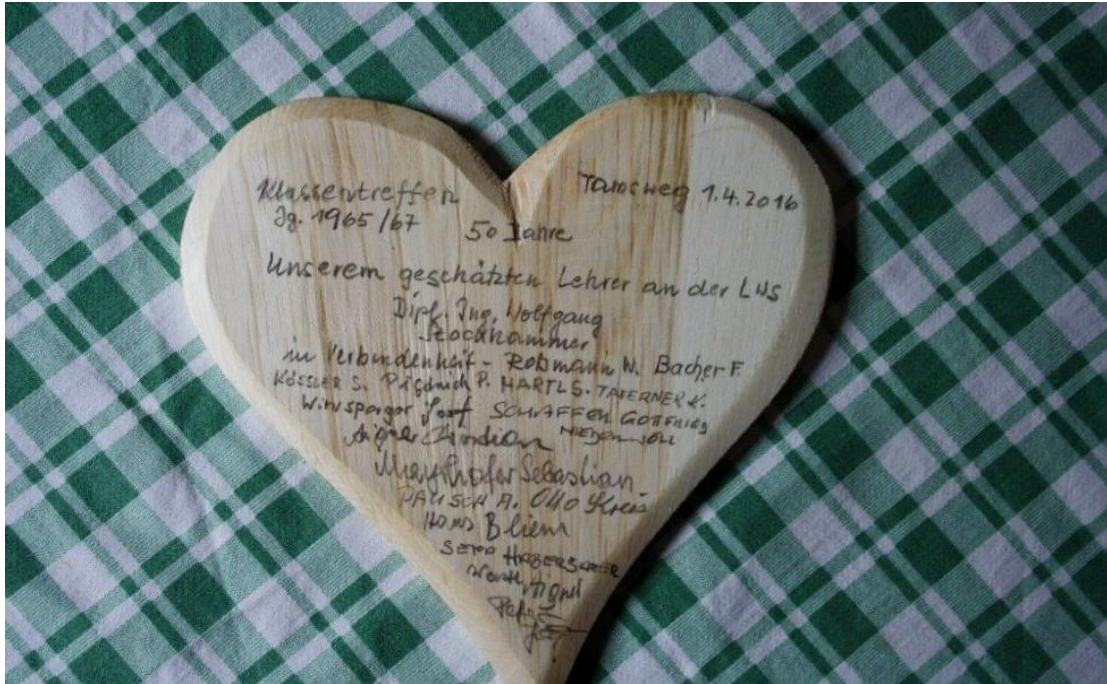 Klassentreffen
Jg. 1965/67
Tamsweg 1.4.2016
50 Jahre
Unserem geschätzten Lehrer an der LWS
Dipl. Ing. Wolfgang
Stockhammer
in Verbundenheit - Roßmann W. Bacher F.
KÖSSLER S. P. HARTL S. TAFERNER K.
Josef SCHAFFER GOTTFRIED
Aigner Christian
Mayrhofer Sebastian
PAUSCH A. Otto
Hans Bliem
SEPP